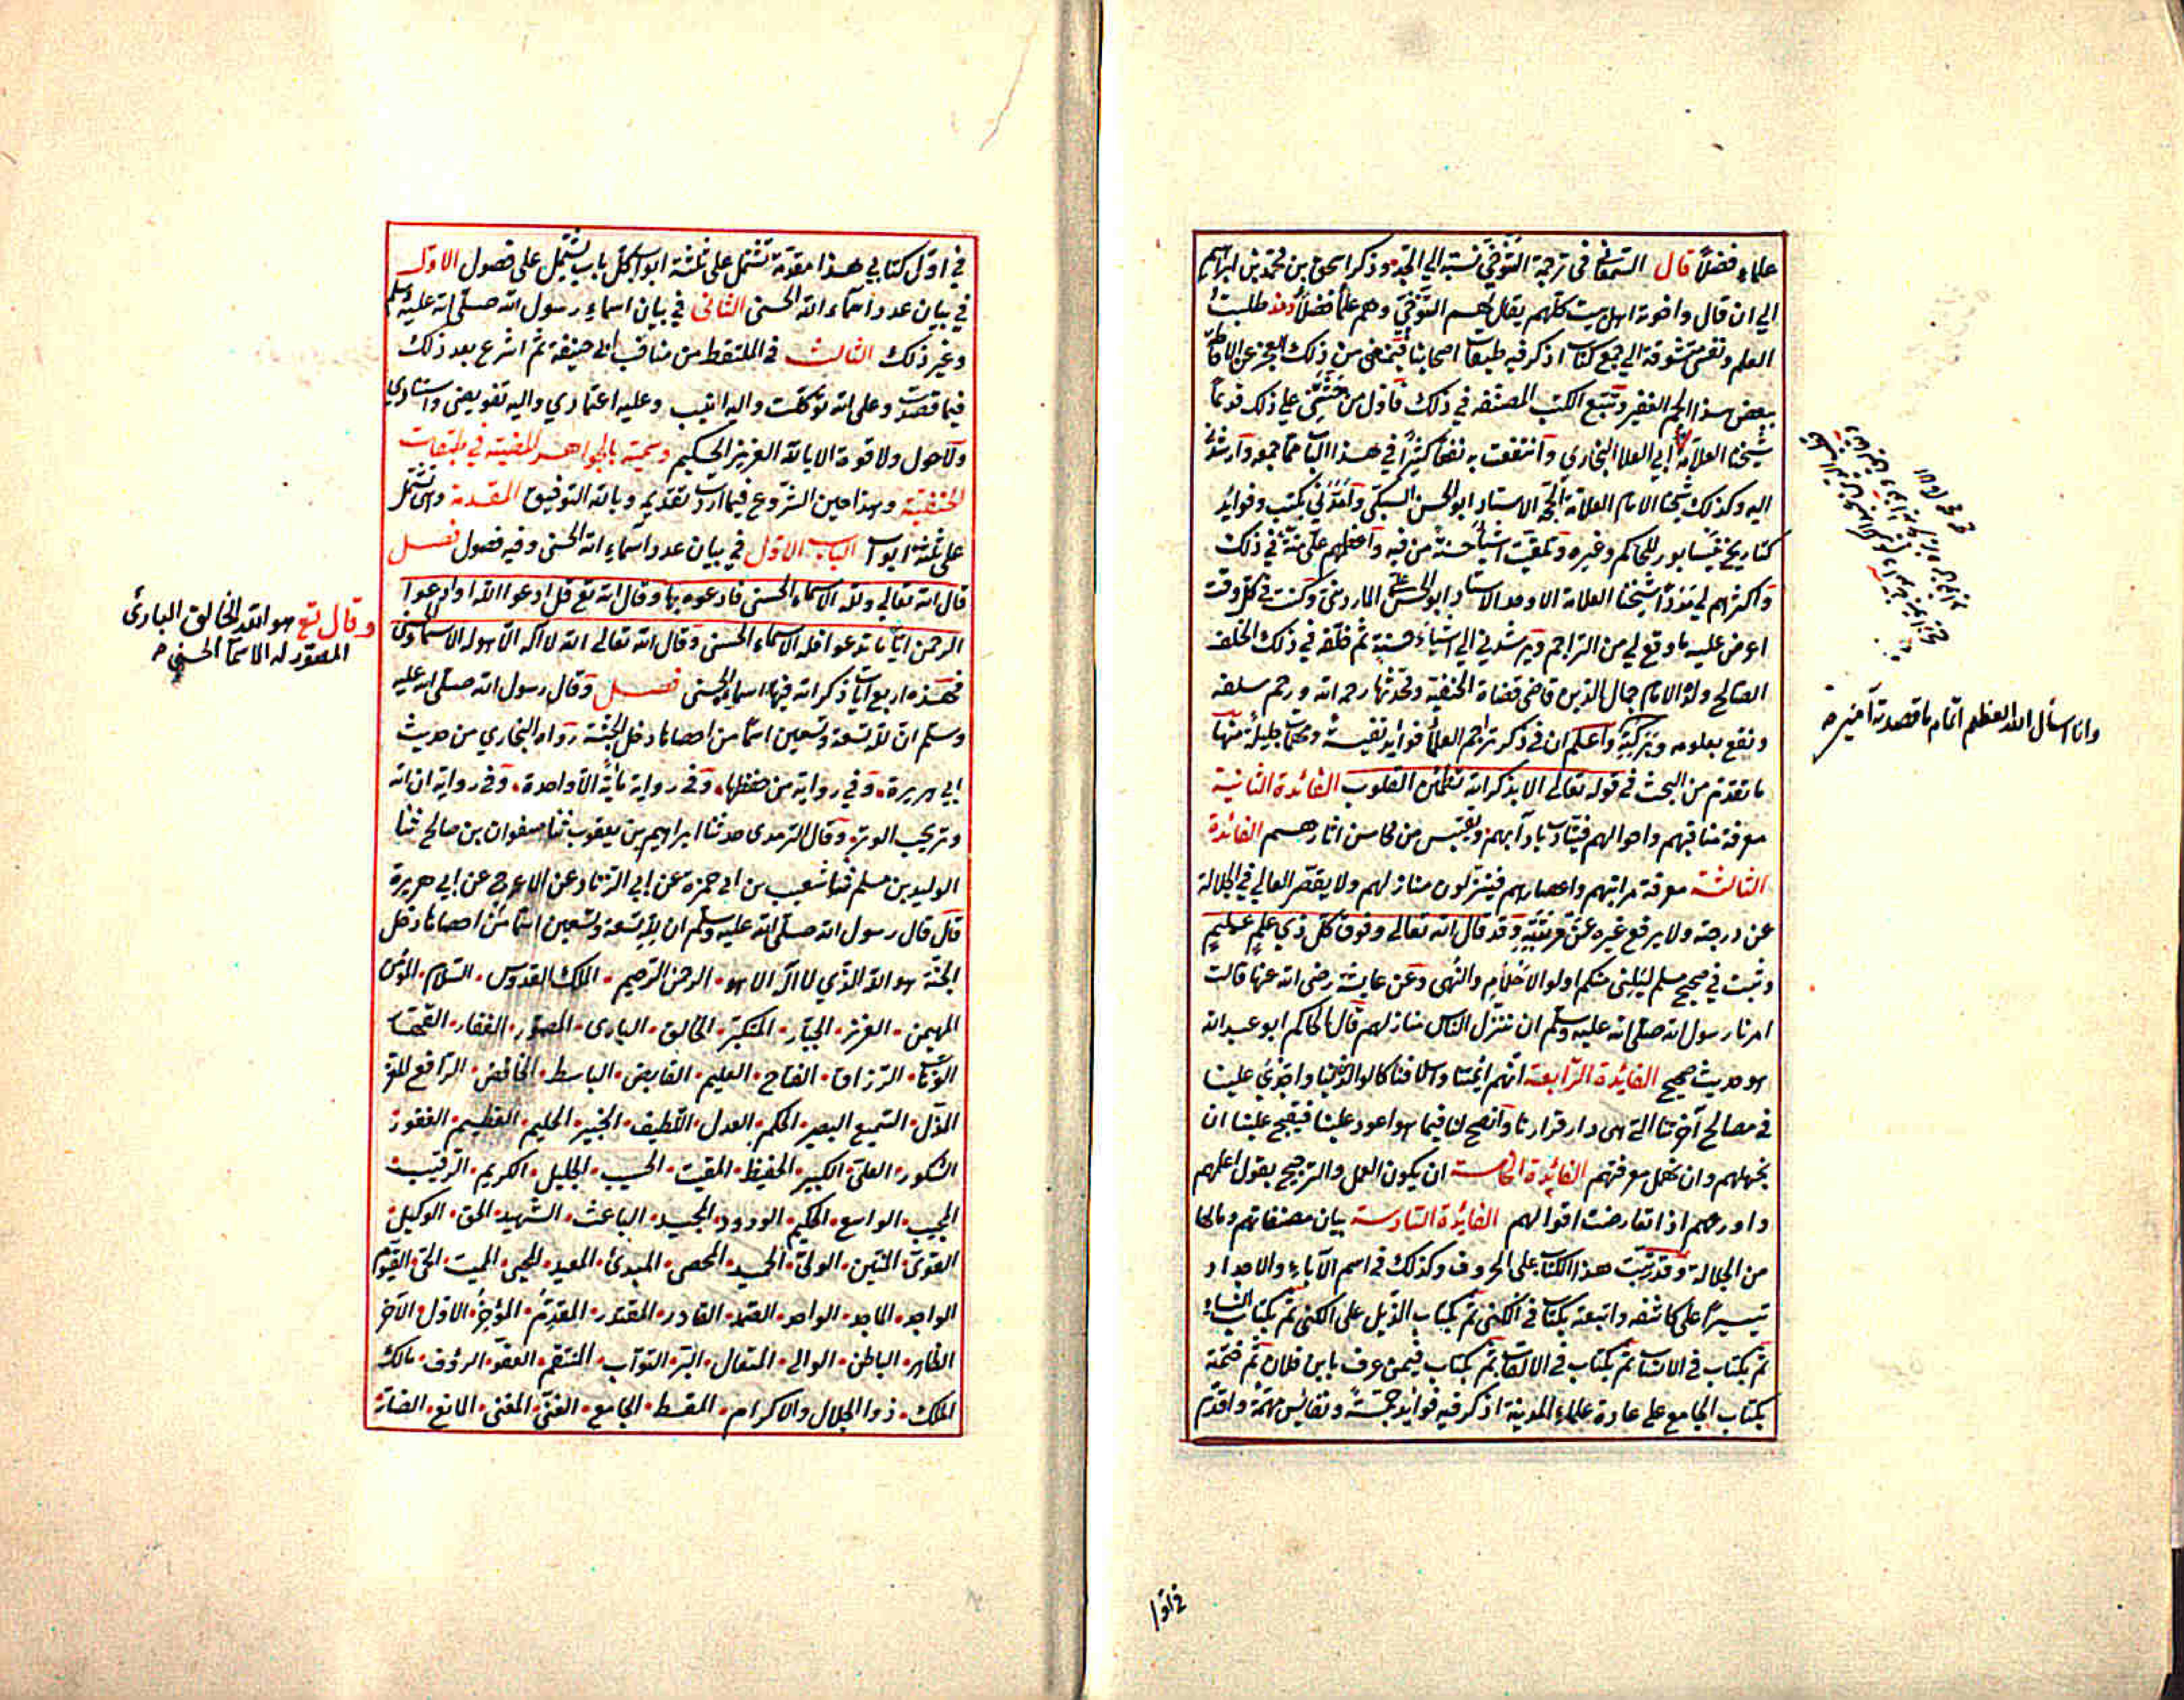 علماء فضلاً قال السمعاني في ترجمة التوحي نسبة الي الجد وذكر اسحق بن محمد بن ابراهيم
الي ان قال واخوته اهل بيت كلهم يقال لهم التوحي وهم علما فضلاً ومنذ طلبت
العلم ونفسي متشوقة الي جمع كتاب اذكر فيه طبقات اصحابنا فيمنعني من ذلك العجز عن الاحاطة
ببعض هذا الجم الغفير وتتبع الكتب المصنفه في ذلك فاول من حثني علي ذلك قديماً
شيخنا العلامة ابي العلا البخاري وانتفعت به نفعا كثيراً في هذا الباب مما جمعه وارشدني
اليه وكذلك شيخنا الامام العلامة الحجة الاستاد ابو الحسن السبكي وامدني بكتب وفوائد
كتاريخ نيسابور للحاكم وغيره وتلقيت اشيا حسنة من فيه واعظمهم علي منة في ذلك
واكثرهم لي مدداً شيخنا العلامة الاوحد الاستاد ابو الحسن علي المارديني وكنت في كل وقت
اعرض عليه ما وقع لي من التراجم ويرشدني الي اشياء حسنة ثم خلفه في ذلك الخلف
الصالح ولده الامام جمال الدين قاضي قضاة الحنفية ومحدثها رحمه الله ورحم سلفه
ونفع بعلومه وبركته واعلم ان في ذكر تراجم العلما فوايد نفيسة ومهمات جليلة منها
ما تقدم من البحث في قوله تعالى الا بذكر الله تطمئن القلوب الفائدة الثانية
معرفة مناقبهم واحوالهم فيتادب بادابهم ويقتبس من محاسن اثارهم الفائدة
الثالثة معرفة مراتبهم واعصارهم فينزلون منازلهم ولا يقصر العالي في الجلالة
عن درجته ولا يرفع غيره عن مرتبته وقد قال الله تعالى وفوق كل ذي علم عليم
وثبت في صحيح مسلم ليلني منكم اولو الاحلام والنهى وعن عايشة رضي الله عنها قالت
امرنا رسول الله صلى الله عليه وسلم ان ننزل الناس منازلهم قال الحاكم ابو عبد الله
هو حديث صحيح الفايدة الرابعة انهم ائمتنا واسلافنا كالوالدين لنا واجدي علينا
في مصالح آخرتنا التي هي دار قرارنا وانصح لنا فيما هو اعود علينا فيقبح علينا ان
نجهلهم وان نهمل معرفتهم الفائدة الخامسة ان يكون العمل والترجيح بقول اعلمهم
واورعهم اذا تعارضت اقوالهم الفايدة السادسة بيان مصنفاتهم وما لها
من الجلالة وقد رتبت هذا الكتاب على الحروف وكذلك في اسم الآباء والاجداد
تيسيراً على كاشفه واتبعته بكتاب في الكنى ثم بكتاب الذيل على الكنى ثم بكتاب النساء
ثم بكتاب في الانساب ثم بكتاب في الالقاب ثم بكتاب فيمن عرف بابن فلان ثم ختمته
بكتاب الجامع على عادة علماء المدينة اذكر فيه فوايد جمة ونفائس مهمة واقدم
وانا اسئال الله العظيم اتمام ما قصدته آمين
في اول
في اول كتابي هذا مقدمة تشتمل على ثلثة ابواب كل باب يشتمل على فصول الاول
في بيان عدد اسماء الله الحسنى الثاني في بيان اسماء رسول الله صلى الله عليه وسلم
وغير ذلك الثالث في الملتقط من مناقب ابي حنيفة ثم اشرع بعد ذلك
فيما قصدت وعلى الله توكلت واليه انيب وعليه اعتمادي واليه تفويضي واستنادي
ولا حول ولا قوة الا بالله العزيز الحكيم وسميته بالجواهر المضية في طبقات
الحنفية وهذا حين الشروع فيما اردت تقديم وبالله التوفيق المقدمة وهي تشتمل
على ثلثة ابواب الباب الاول في بيان عدد اسماء الله الحسنى وفيه فصول فصل
قال الله تعالي ولله الاسماء الحسنى فادعوه بها وقال الله تع قل ادعوا الله او ادعوا
الرحمن ايا ما تدعوا فله الاسماء الحسنى وقال الله تعالى الله لا اله الا هو له الاسماء الحسنى
وقال تع هو الله الخالق البارئ
المصور له الاسما الحسنى
فهذه اربع ايات ذكر الله فيها اسماءه الحسنى فصل وقال رسول الله صلى الله عليه
وسلم ان لله تسعة وتسعين اسما من احصاها دخل الجنة رواه البخاري من حديث
ابي هريرة وفي رواية من حفظها وفي رواية ماية الا واحدة وفي رواية ان الله
وتر يحب الوتر وقال الترمدى حدثنا ابراهيم بن يعقوب ثنا صفوان بن صالح ثنا
الوليد بن مسلم ثنا شعيب بن ابي حمزة عن ابي الزناد عن الاعرج عن ابي هريرة
قال قال رسول الله صلى الله عليه وسلم ان لله تسعة وتسعين اسما من احصاها دخل
الجنة هو الله الذي لا اله الا هو الرحمن الرحيم الملك القدوس السلام المؤمن
المهيمن العزيز الجبار المتكبر الخالق البارى المصور الغفار القهار
الوهاب الرزاق الفتاح العليم القابض الباسط الخافض الرافع المعز
المذل السميع البصير الحكم العدل اللطيف الخبير الحليم العظيم الغفور
الشكور العلي الكبير الحفيظ المقيت الحسيب الجليل الكريم الرقيب
المجيب الواسع الحكيم الودود المجيد الباعث الشهيد الحق الوكيل
القوى المتين الولى الحميد المحصى المبدئ المعيد المحيى المميت الحى القيوم
الواجد الماجد الواحد الصمد القادر المقتدر المقدم المؤخر الاول الآخر
الظاهر الباطن الوالى المتعال البر التواب المنتقم العفو الرؤف مالك
الملك ذوا الجلال والاكرام المقسط الجامع الغنى المغنى المانع الضار